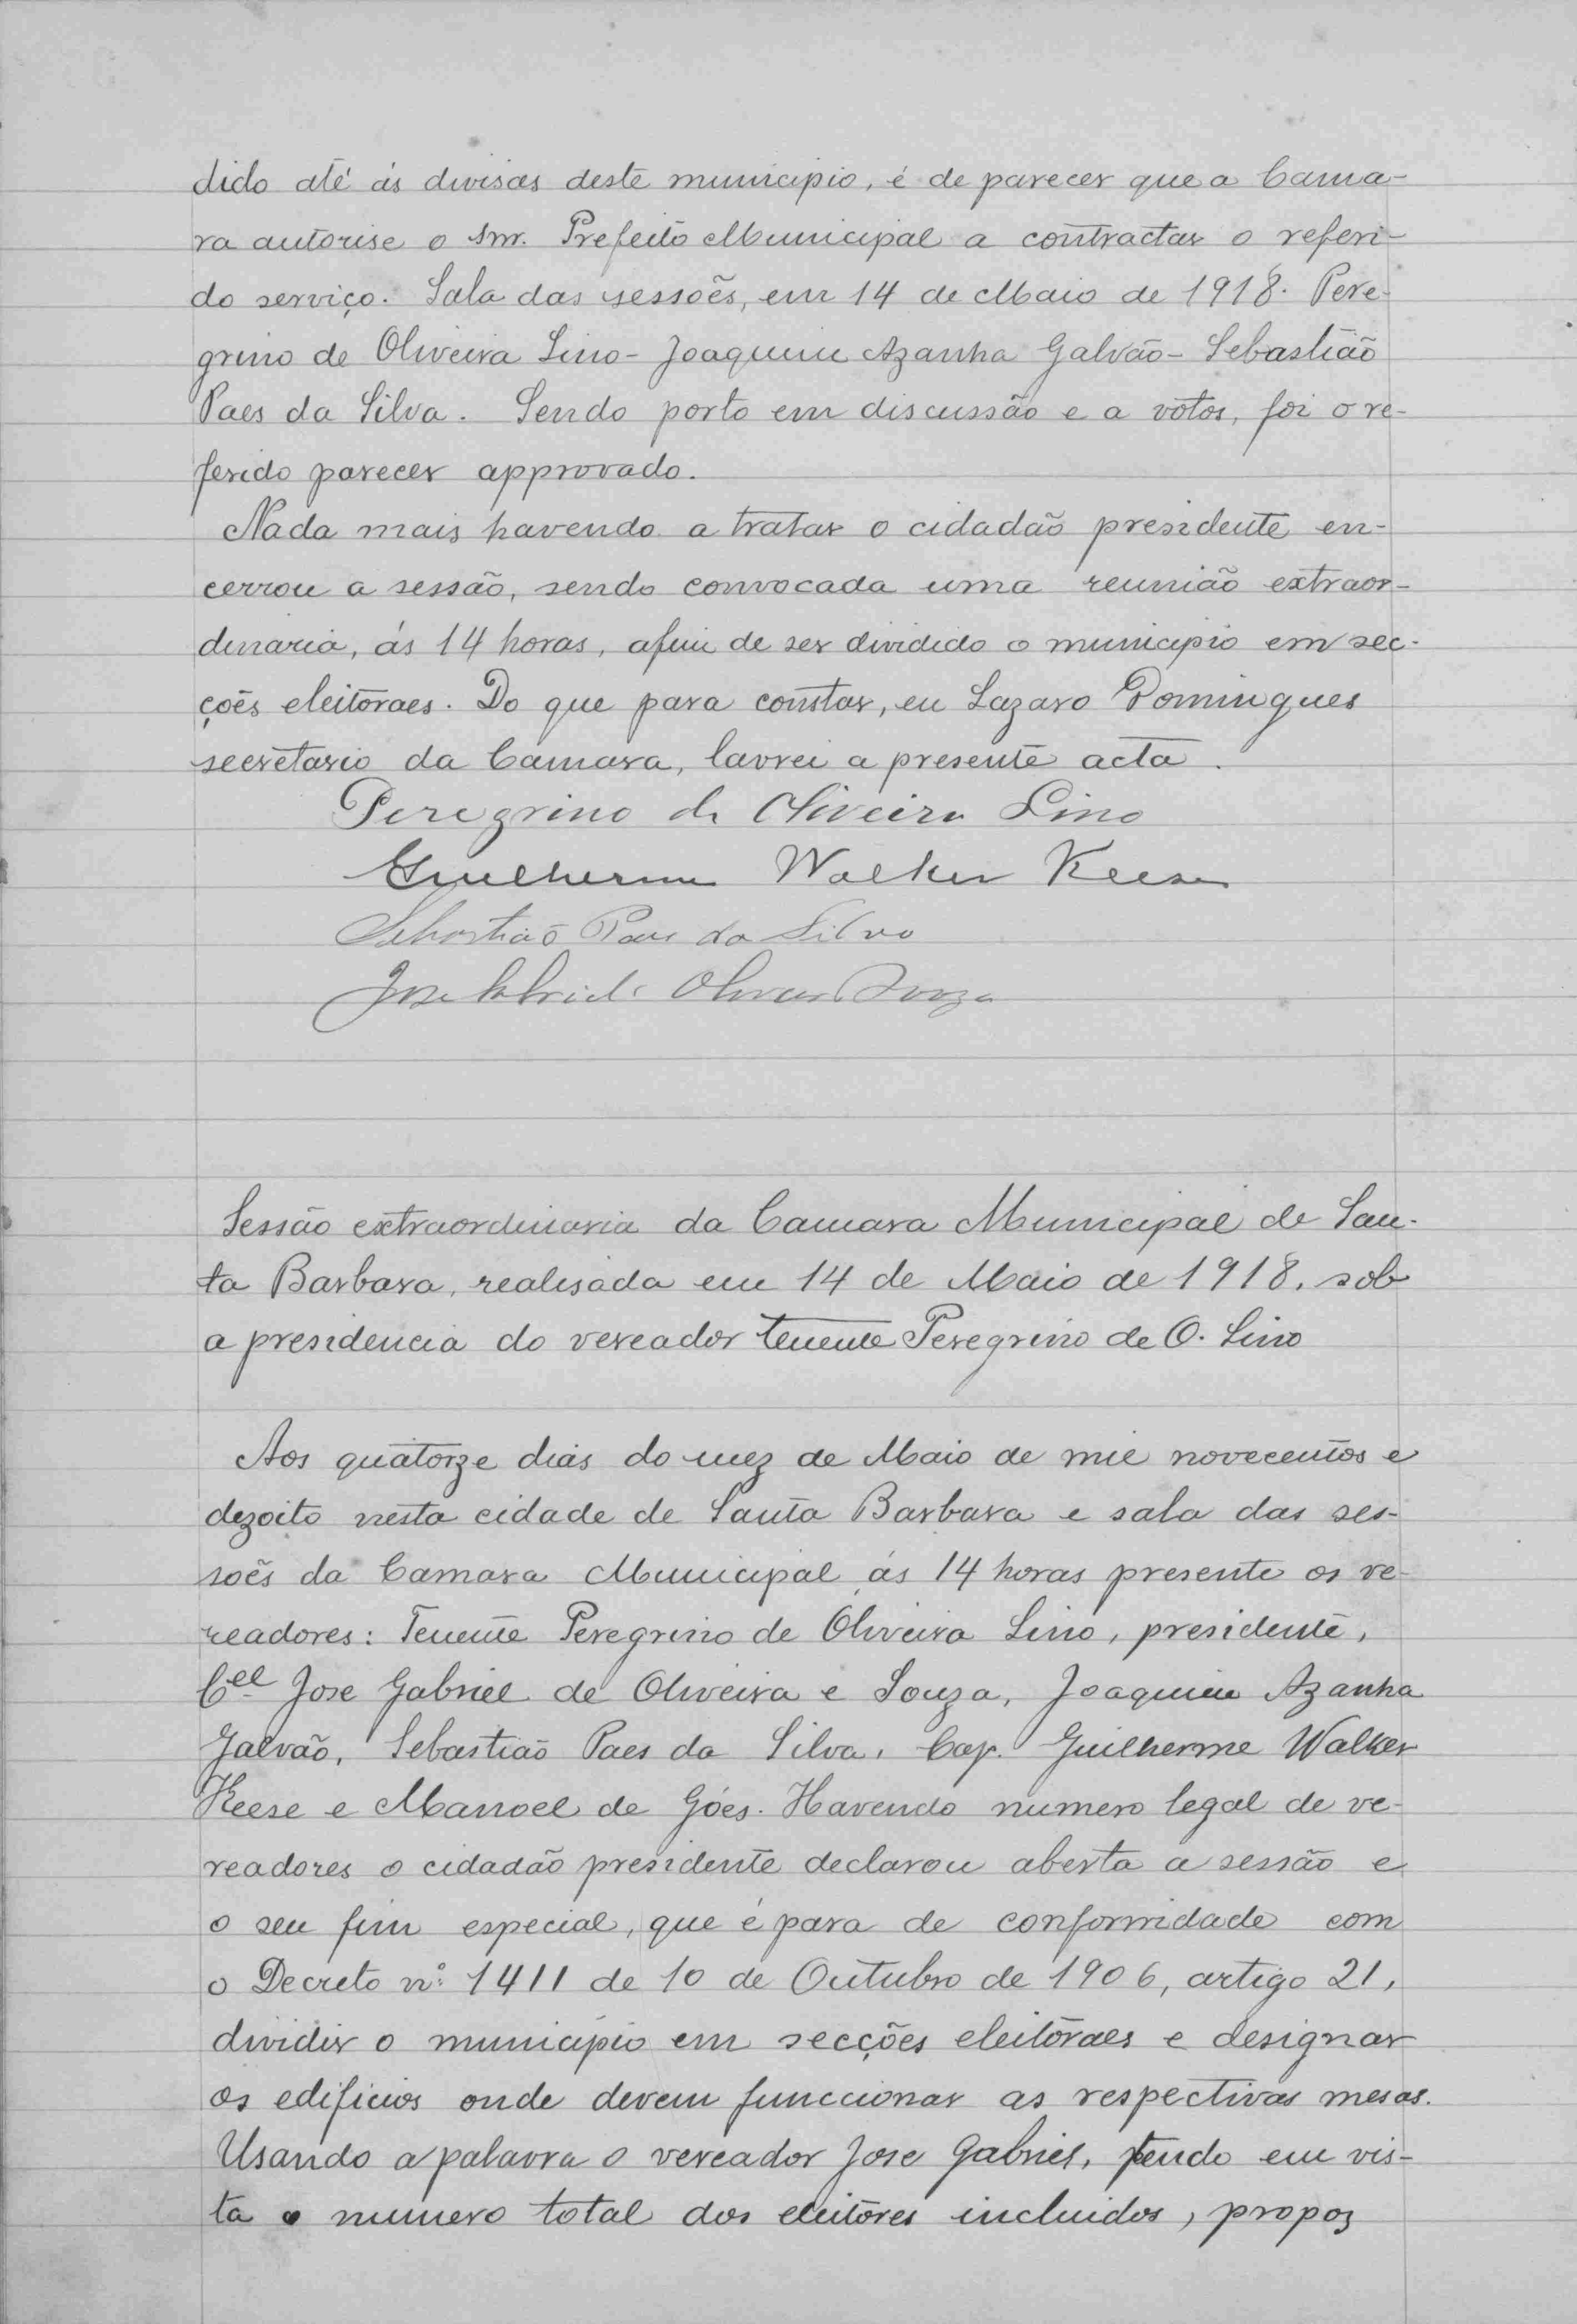 dido até ás divisas deste municipio, é de parecer que a Cama-
ra autorise o Snr. Prefeito Municipal a contractar o referi-
do serviço. Sala das sessões, em 14 de Maio de 1918. Pere-
grino de Oliveira Lino - Joaquim Azanha Galvão - Sebastião
Paes da Silva. Sendo posto em discussão e a votos, foi o re-
ferido parecer approvado.
Nada mais havendo a tratar o cidadão presidente en-
cerrou a sessão, sendo convocada uma reunião extraor-
dinaria, ás 14 horas, afim de ser dividido o municipio em sec-
ções eleitoraes. Do que para constar, eu Lazaro Domingues
secretario da Camara, lavrei a presente acta.
Peregrino de Oliveira Lino
Guilherme Walker Keese
Sebastião Paes da Silva
Jose Gabriel de Oliveira Souza
Sessão extraordinaria da Camara Municipal de San-
ta Barbara, realisada em 14 de Maio de 1918, sob
a presidencia do vereador tenente Peregrino de O. Lino
Aos quatorze dias do mez de Maio de mil novecentos e
dezoito nesta cidade de Santa Barbara e sala das ses-
sões da Camara Municipal ás 14 horas presente os ve-
readores: Tenente Peregrino de Oliveira Lino, presidente,
Cel. Jose Gabriel de Oliveira e Souza, Joaquim Azanha
Galvão, Sebastião Paes da Silva, Cap. Guilherme Walker
Keese e Manoel de Góes. Havendo numero legal de ve-
readores o cidadão presidente declarou aberta a sessão e
o seu fim especial, que é para de conformidade com
o Decreto nº 1411 de 10 de Outubro de 1906, artigo 21,
dividir o municipio em secções eleitoraes e designar
os edificios onde devem funccionar as respectivas mesas.
Usando a palavra o vereador Jose Gabriel, tendo em vis-
ta o numero total dos eleitores incluidos, propoz